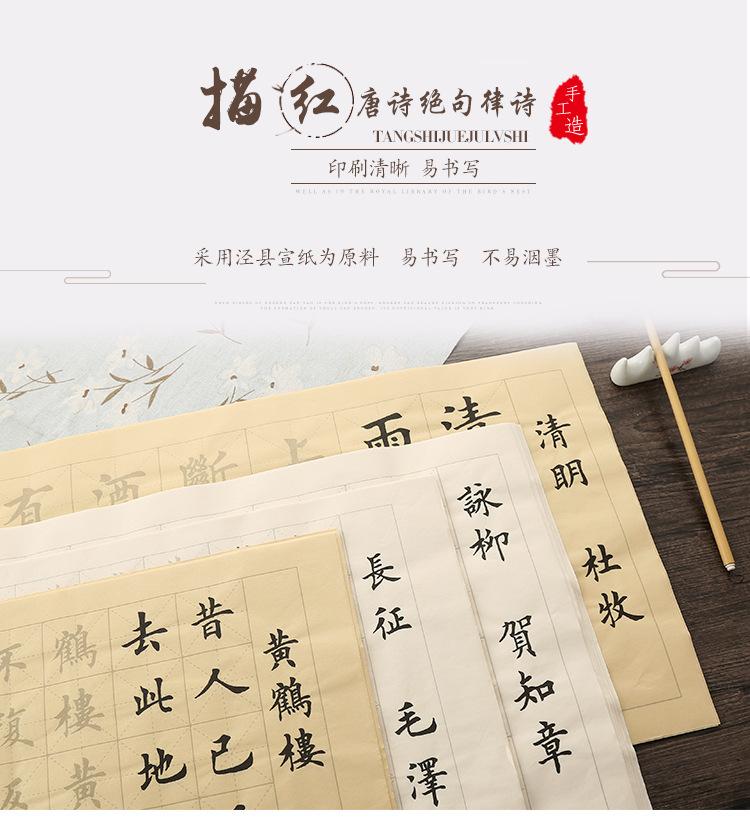 描红 唐诗绝句律诗
手工造
TANGSHIJUEJULVSHI
印刷清晰 易书写
WELL AS IN THE ROYAL LIBRARY OF THE BIRD'S NEST
采用泾县宣纸为原料 易书写 不易洇墨
清明 杜牧
清
雨
上
斷
酒
有
詠柳 賀知章
長征 毛澤
黃鶴樓
昔人已
去此地
鶴樓黃
不復返